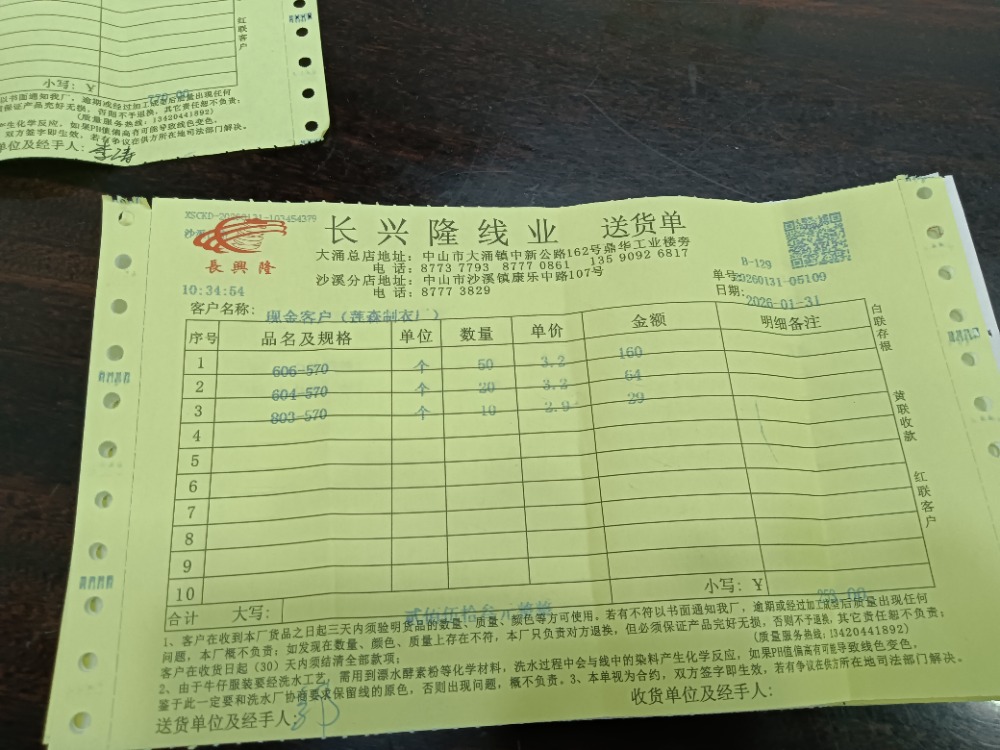 红联客户
小写：￥
770.00
以书面通知我厂，逾期或经过加工成型后质量出现任何
保证产品完好无损，否则不予退换，其它责任恕不负责；
(质量服务热线：13420441892)
产生化学反应，如果PH值偏高有可能导致线色变色，
双方签字即生效，若有争议在供方所在地司法部门解决。
单位及经手人：李涛
XSCKD-20260131-103454379
沙溪
長興隆
长兴隆线业 送货单
大涌总店地址：中山市大涌镇中新公路162号鼎华工业楼旁
电话：8773 7793 8777 0861 135 9092 6817
沙溪分店地址：中山市沙溪镇康乐中路107号
电话：8777 3829
B-129
单号：20260131-05109
日期：2026-01-31
10:34:54
客户名称：现金客户（莲森制衣厂）
序号 品名及规格 单位 数量 单价 金额 明细备注
1 606-570 个 50 3.2 160
2 604-570 个 20 3.2 64
3 803-570 个 10 2.9 29
4
5
6
7
8
9
10
小写：￥ 253.00
合计 大写：贰佰伍拾叁元整
白联存根
黄联收款
红联客户
1、客户在收到本厂货品之日起三天内须验明货品的数量、质量、颜色等方可使用。若有不符以书面通知我厂，逾期或经过加工成型后质量出现任何
问题，本厂概不负责；如发现在数量、颜色、质量上存在不符，本厂只负责对方退换。但必须保证产品完好无损，否则不予退换，其它责任恕不负责；
客户在收货日起（30）天内须结清全部款项； (质量服务热线：13420441892)
2、由于牛仔服装要经洗水工艺，需用到漂水酵素粉等化学材料，洗水过程中会与线中的染料产生化学反应，如果PH值偏高有可能导致线色变色，
鉴于此一定要和洗水厂协商要求保留线的原色，否则出现问题，概不负责。3、本单视为合约，双方签字即生效，若有争议在供方所在地司法部门解决。
送货单位及经手人：
收货单位及经手人：